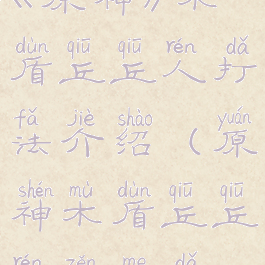 《原神》木
dùn qiū qiū rén dǎ
盾丘丘人打
fǎ jiè shào yuán
法介绍（原
shén mù dùn qiū qiū
神木盾丘丘
rén zěn me dǎ